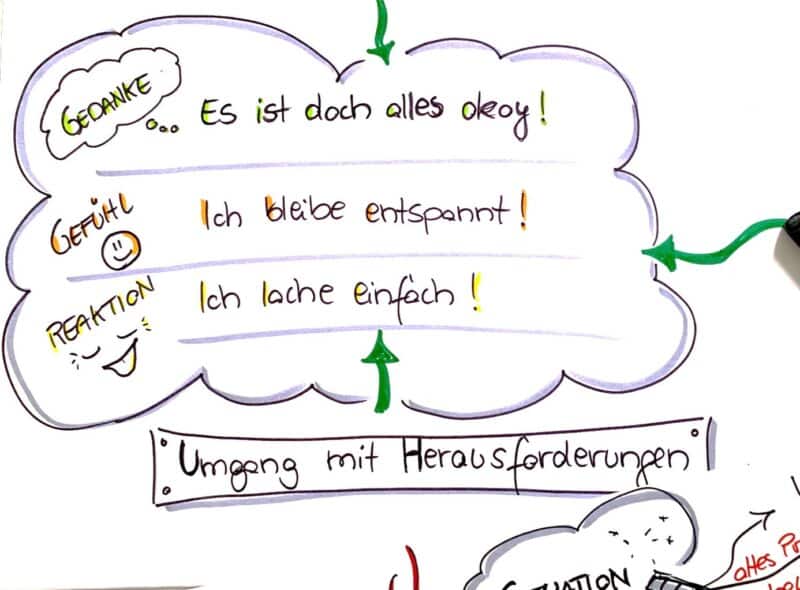 GEDANKE
Es ist doch alles okay!
GEFÜHL
Ich bleibe entspannt!
REAKTION
Ich lache einfach!
Umgang mit Herausforderungen
altes